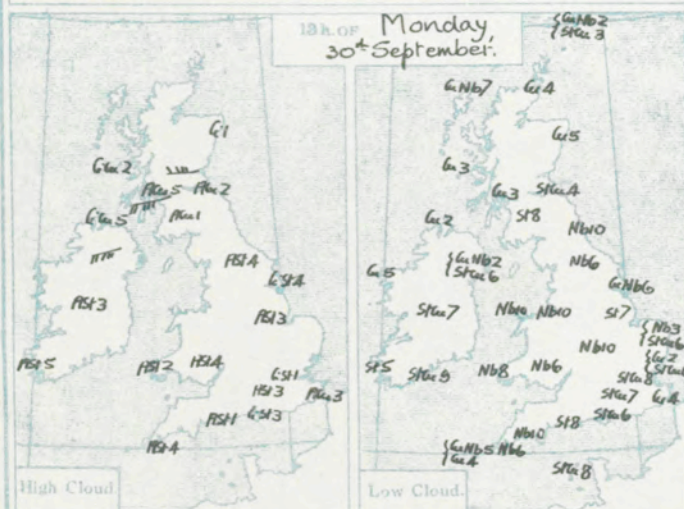 13h. OF Monday,
30th September.
High Cloud.
Ci1
CiCu2
ACu5
ACu2
CiCu5
ACu1
ASt4
CiSt4
ASt3
ASt3
ASt5
ASt2
ASt4
CiSt1
ASt3
ACu3
ASt1
CiSt3
ASt4
Low Cloud.
CuNb2
StCu3
CuNb7
Cu4
Cu5
Cu3
Cu3
StCu4
Cu2
St8
Nb10
CuNb2
StCu6
Nb6
Cu5
CuNb6
StCu7
Nb10
Nb10
St7
Nb3
StCu6
Nb10
Cu2
St5
StCu9
Nb8
Nb6
StCu8
StCu7
Cu4
StCu6
St8
Nb10
CuNb5
Cu4
Nb6
StCu8